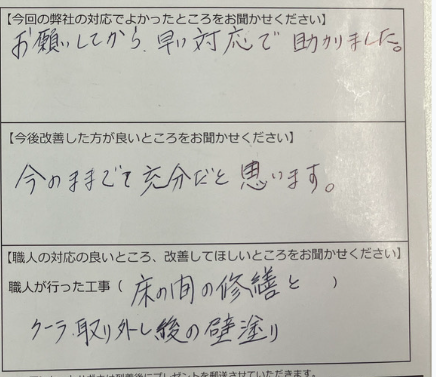 【今回の弊社の対応でよかったところをお聞かせください】
お願いしてから、早い対応で 助かりました。
【今後改善した方が良いところをお聞かせください】
今のままでで充分だと思います。
【職人の対応の良いところ、改善してほしいところをお聞かせください】
職人が行った工事（ 床の間の修繕と ）
クーラ取り外し後の壁塗り